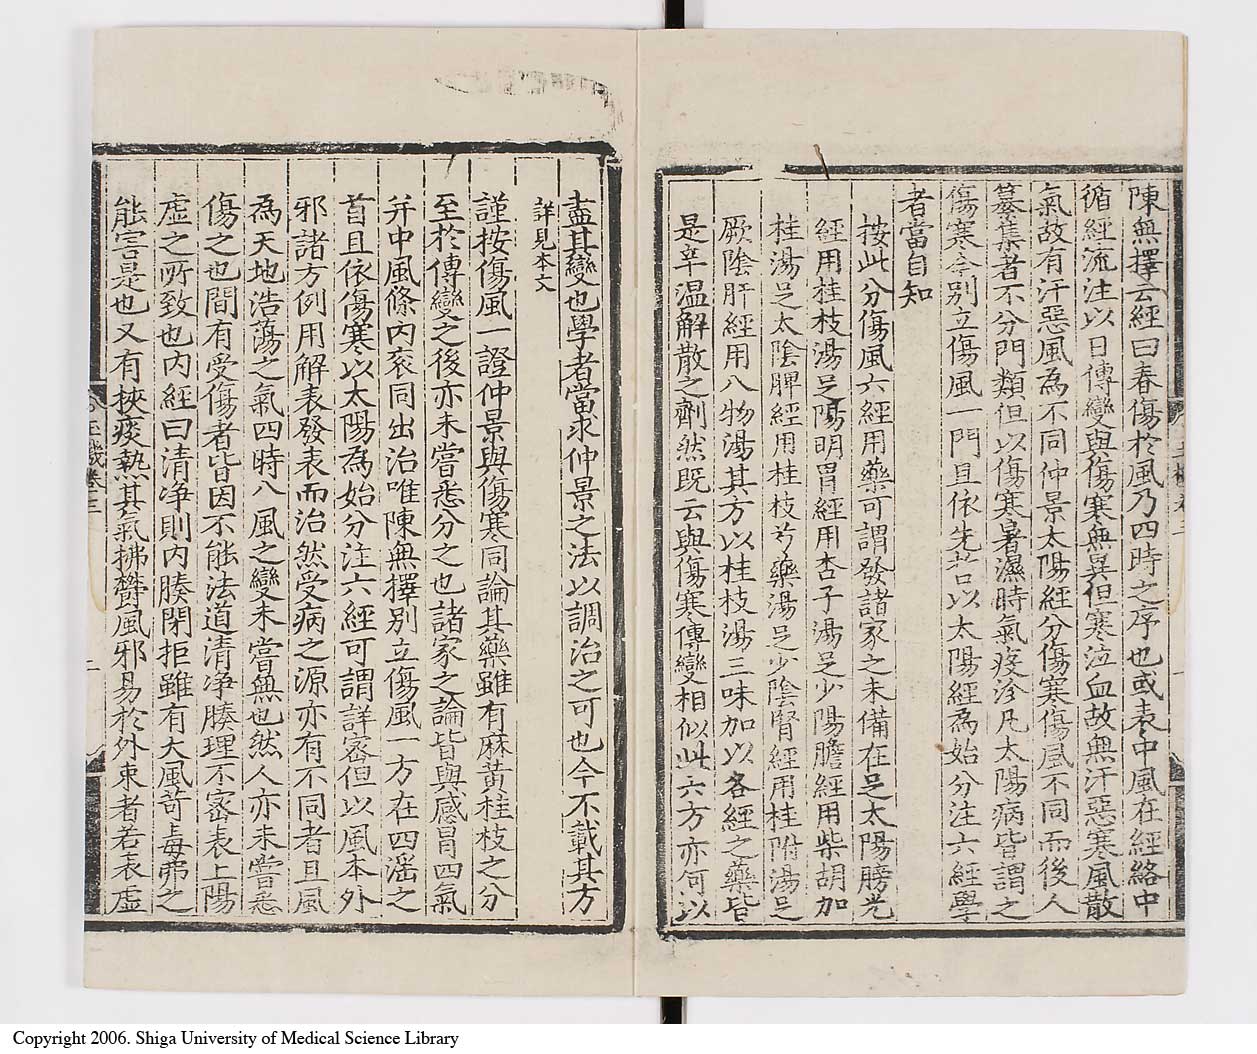 陳無擇云經曰春傷於風乃四時之序也或表中風在經絡中
循經流注以日傳變與傷寒無異但寒泣血故無汗惡寒風散
氣故有汗惡風為不同仲景太陽經分傷寒傷風不同而後人
纂集者不分門類但以傷寒暑濕時氣疫沴凡太陽病皆謂之
傷寒今別立傷風一門且依先哲以太陽經為始分注六經學
者當自知
按此分傷風六經用藥可謂發諸家之未備在足太陽膀光
經用桂枝湯足陽明胃經用杏子湯足少陽膽經用柴胡加
桂湯足太陰脾經用桂枝芍藥湯足少陰腎經用桂附湯足
厥陰肝經用八物湯其方以桂枝湯三味加以各經之藥皆
是辛溫解散之劑然既云與傷寒傳變相似此六方亦何以
盡其變也學者當求仲景之法以調治之可也今不載其方
詳見本文
謹按傷風一證仲景與傷寒同論其藥雖有麻黃桂枝之分
至於傳變之後亦未嘗悉分之也諸家之論皆與感冒四氣
并中風條內衮同出治唯陳無擇別立傷風一方在四淫之
首且依傷寒以太陽為始分注六經可謂詳密但以風本外
邪諸方例用解表發表而治然受病之源亦有不同者且風
為天地浩蕩之氣四時八風之變未嘗無也然人亦未嘗悉
傷之也間有受傷者皆因不能法道清净腠理不密表上陽
虛之所致也內經曰清净則內腠閉拒雖有大風苛毒弗之
能害是也又有挾痰熱其氣拂欝風邪易於外束者若表虛
玉機卷二
Copyright 2006. Shiga University of Medical Science Library